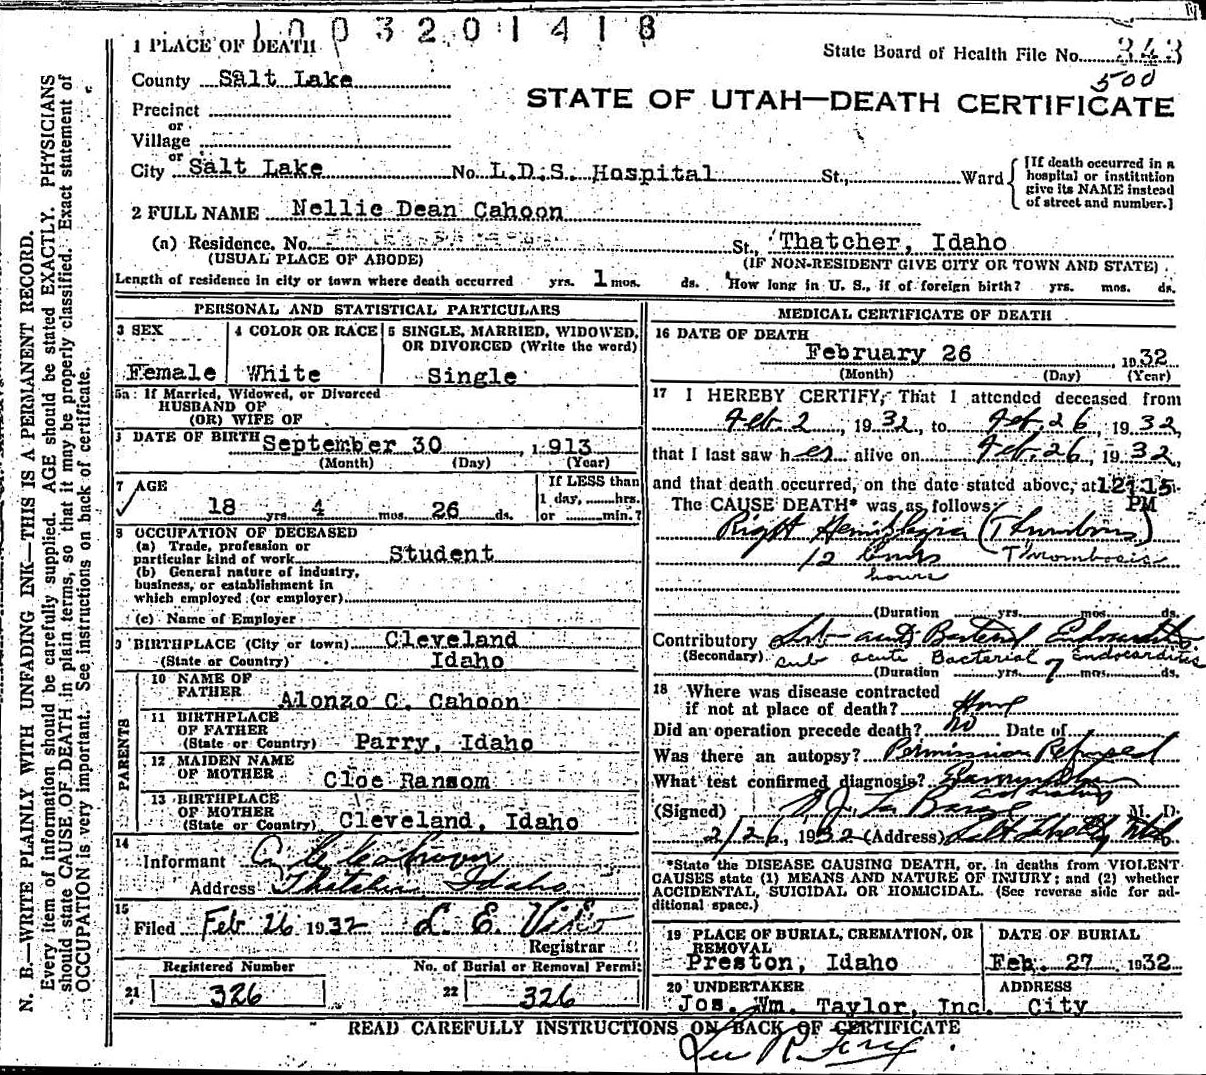 1003201418
1 PLACE OF DEATH
State Board of Health File No. 343
500
County Salt Lake
STATE OF UTAH—DEATH CERTIFICATE
Precinct
or
Village
or
City Salt Lake No. L.D.S. Hospital St., Ward
[If death occurred in a
hospital or institution
give its NAME instead
of street and number.]
2 FULL NAME Nellie Dean Cahoon
(a) Residence. No. St., Thatcher, Idaho
(USUAL PLACE OF ABODE) (IF NON-RESIDENT GIVE CITY OR TOWN AND STATE)
Length of residence in city or town where death occurred yrs. 1 mos. ds. How long in U. S., if of foreign birth? yrs. mos. ds.
PERSONAL AND STATISTICAL PARTICULARS
3 SEX
Female
4 COLOR OR RACE
White
5 SINGLE, MARRIED, WIDOWED,
OR DIVORCED (Write the word)
Single
5a If Married, Widowed, or Divorced
HUSBAND OF
(OR) WIFE OF
DATE OF BIRTH September 30, 1913
(Month) (Day) (Year)
7 AGE
18 yrs. 4 mos. 26 ds.
If LESS than
1 day, hrs.
or min.?
8 OCCUPATION OF DECEASED
(a) Trade, profession or
particular kind of work Student
(b) General nature of industry,
business, or establishment in
which employed (or employer)
(c) Name of Employer
9 BIRTHPLACE (City or town) Cleveland
(State or Country) Idaho
PARENTS
10 NAME OF
FATHER Alonzo C. Cahoon
11 BIRTHPLACE
OF FATHER
(State or Country) Parry, Idaho
12 MAIDEN NAME
OF MOTHER Cloe Ransom
13 BIRTHPLACE
OF MOTHER
(State or Country) Cleveland, Idaho
14
Informant
Address Thatcher Idaho
15
Filed Feb 26 1932 L. E. Viko
Registrar
Registered Number
21 326
No. of Burial or Removal Permit
22 326
MEDICAL CERTIFICATE OF DEATH
16 DATE OF DEATH
February 26 1932
(Month) (Day) (Year)
17 I HEREBY CERTIFY, That I attended deceased from
Feb. 2, 1932, to Feb. 26, 1932,
that I last saw her alive on Feb. 26, 1932,
and that death occurred, on the date stated above, at 12:15
The CAUSE DEATH* was as follows: PM
Right Hemiplegia (Thrombosis)
12 hours Thrombosis
hours
(Duration yrs. mos. ds.
Contributory Sub acute Bacterial Endocarditis
(Secondary) sub acute Bacterial Endocarditis
(Duration yrs. 7 mos. ds.
18 Where was disease contracted
if not at place of death? Home
Did an operation precede death? no Date of
Was there an autopsy? Permission Refused
What test confirmed diagnosis?
(Signed) M. D.
2/26, 1932 (Address)
*State the DISEASE CAUSING DEATH, or, in deaths from VIOLENT
CAUSES state (1) MEANS AND NATURE OF INJURY; and (2) whether
ACCIDENTAL, SUICIDAL OR HOMICIDAL. (See reverse side for ad-
ditional space.)
19 PLACE OF BURIAL, CREMATION, OR
REMOVAL
Preston, Idaho
DATE OF BURIAL
Feb. 27 1932
20 UNDERTAKER
Jos. Wm. Taylor, Inc.
ADDRESS
City
READ CAREFULLY INSTRUCTIONS ON BACK OF CERTIFICATE
N. B.—WRITE PLAINLY WITH UNFADING INK—THIS IS A PERMANENT RECORD.
Every item of information should be carefully supplied. AGE should be stated EXACTLY. PHYSICIANS
should state CAUSE OF DEATH in plain terms, so that it may be properly classified. Exact statement of
OCCUPATION is very important. See instructions on back of certificate.